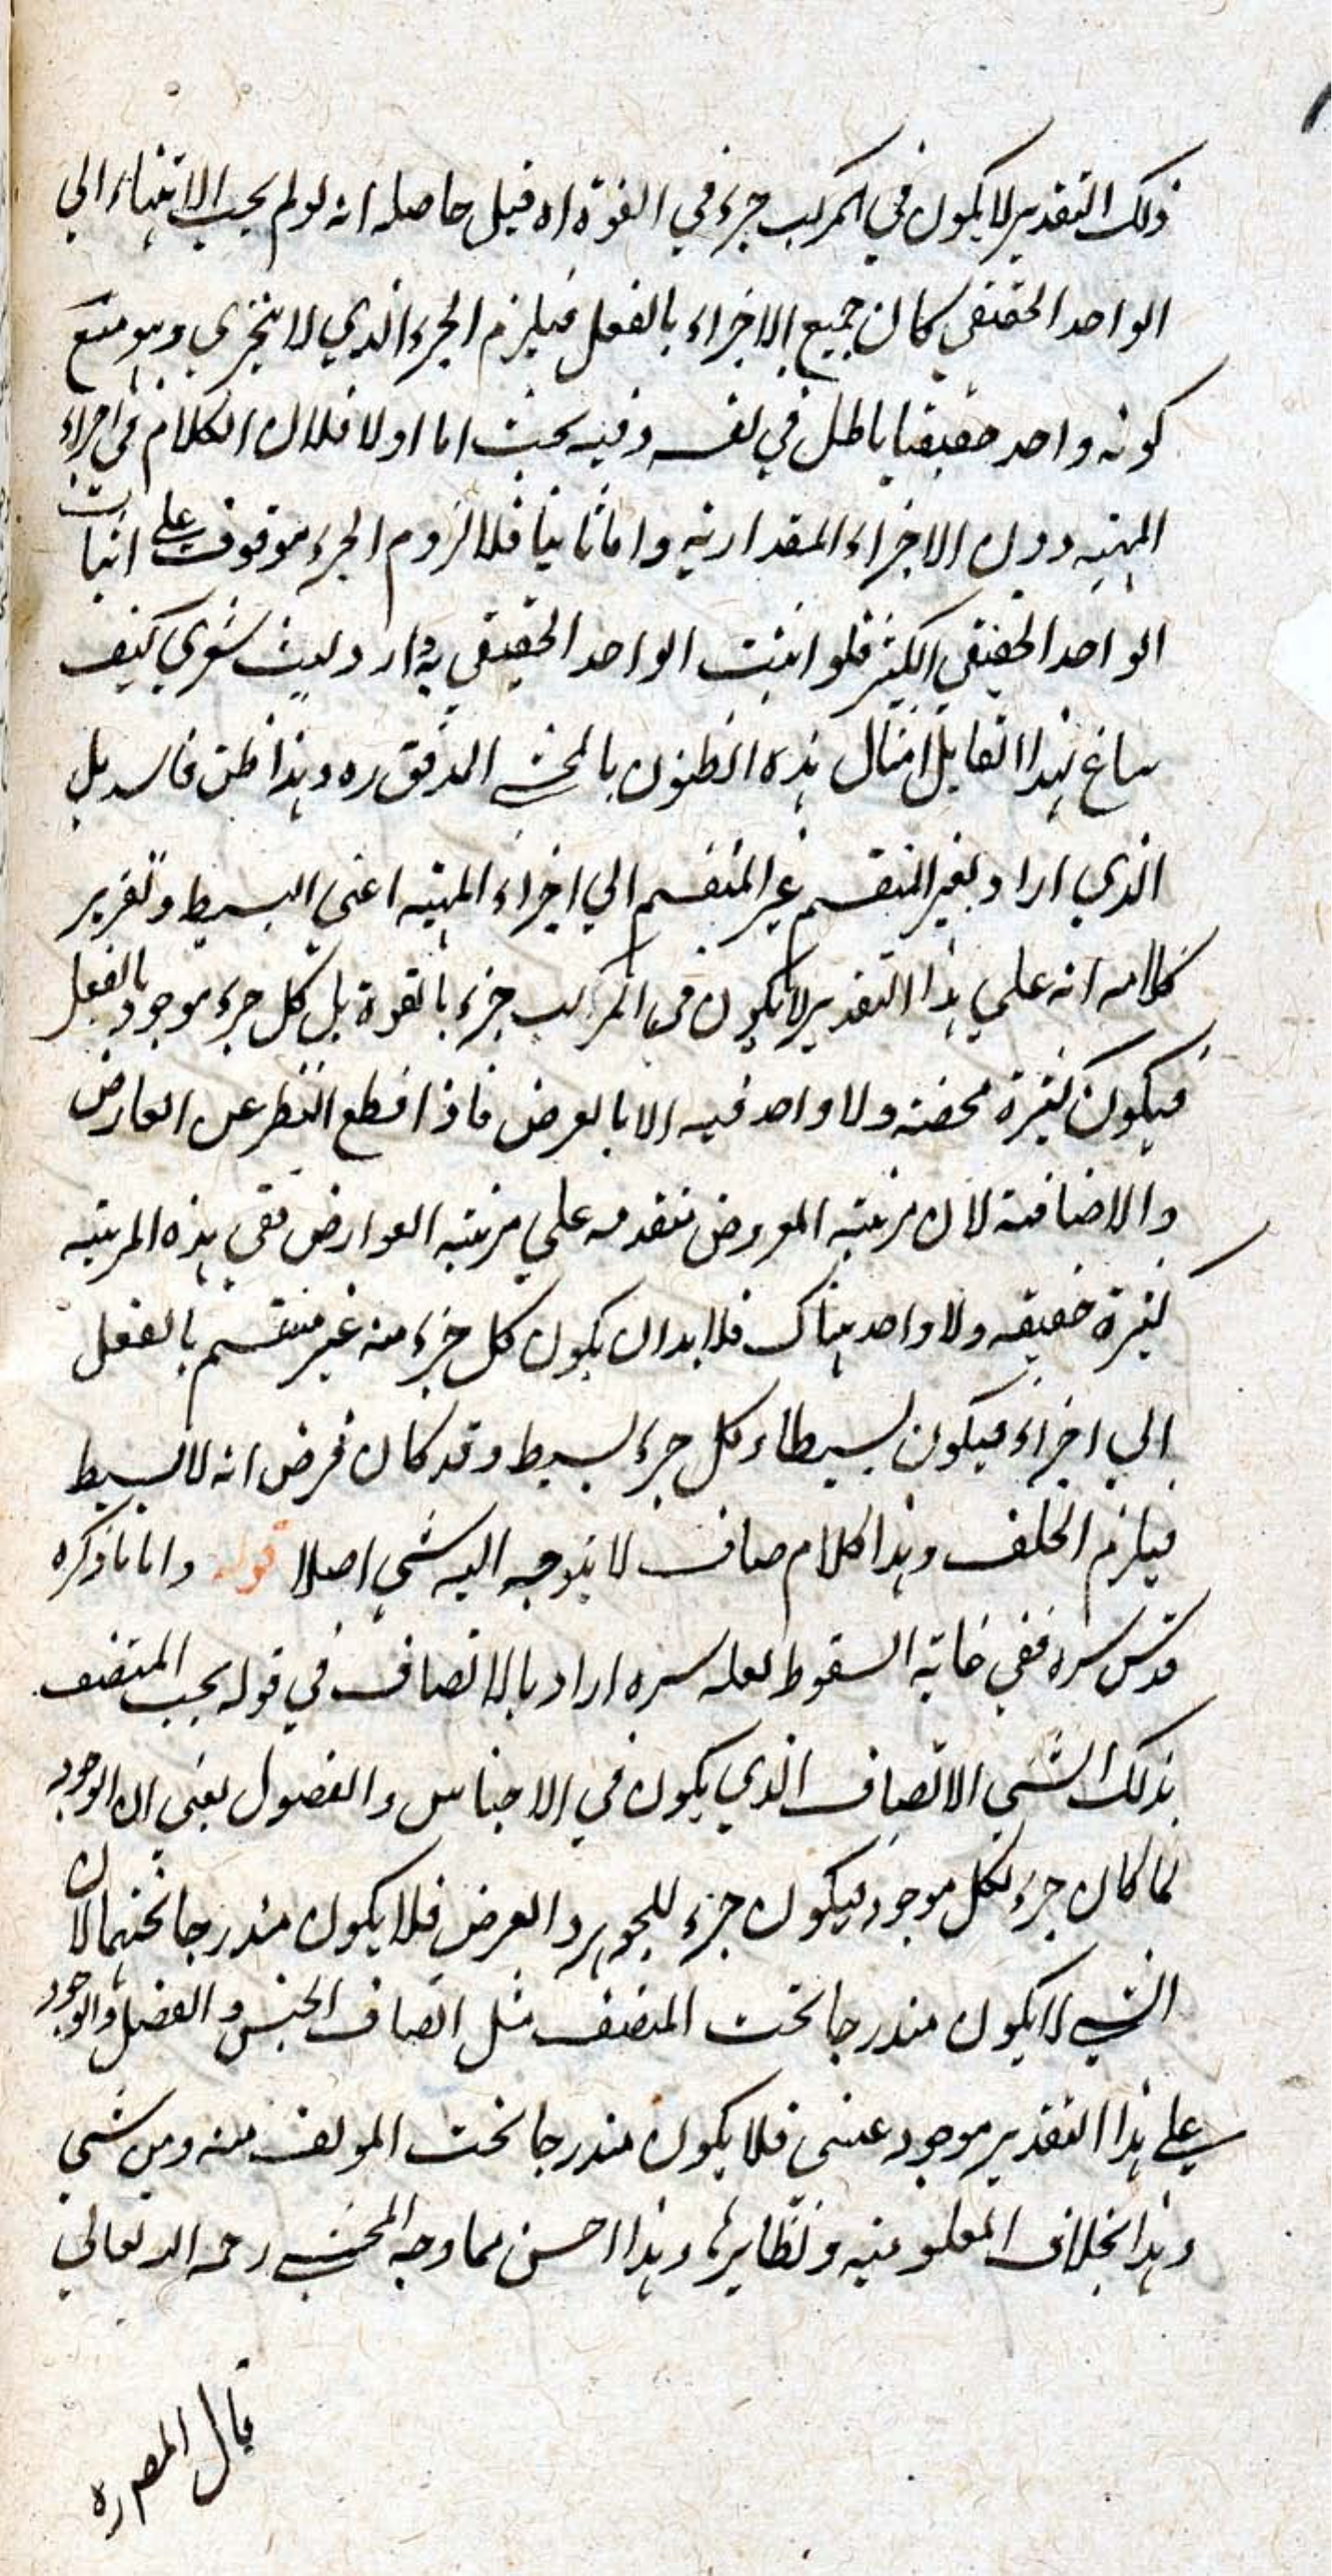 ذلك التقدير لا يكون في المركب جزء في القوة اه قيل حاصله انه لو لم يجب الانتهاء الي
الواحد الحقيقي كان جميع الاجزاء بالفعل فيلزم الجزء الذي لا يتجزي وهو مع
كونه واحد حقيقيا باطل في نفسه وفيه بحث اما اولا فلان الكلام في اجزاء
المهية دون الاجزاء المقدارية واما ثانيا فلا لزوم الجزء موقوف علي اثبات
الواحد الحقيقي الكثير فلو اثبت الواحد الحقيقي به دار وليت شعري كيف
ساغ لهذا القايل امثال هذه الظنون بالمحشي المدقق ره وهذا ظن فاسد بل
الذي اراد بغير المنقسم غير المنقسم الي اجزاء المهية اعني البسيط وتقرير
كلامه انه علي هذا التقدير لا يكون في المركب جزء بالقوة بل كل جزء موجود بالفعل
فيكون كثرة محضة ولا واحد فيه الا بالعرض فاذا قطع النظر عن العارض
والاضافة لان مرتبة المعروض متقدمة علي مرتبة العوارض ففي هذه المرتبة
كثرة حقيقة ولا واحد هناك فلا بد ان يكون كل جزء منه غير منقسم بالفعل
الي اجزاء فيكون بسيطا وكل جزء بسيط وقد كان فرض انه لا بسيط
فيلزم الخلف وهذا كلام صاف لا يتوجه اليه شي اصلا قوله واما ما ذكره
قدس سره ففي غاية السقوط لعله سره اراد بالاتصاف في قوله يجب المتصف
بذلك الشي الاتصاف الذي يكون في الاجناس والفصول يعني ان الوجود
لما كان جزء لكل موجود ليكون جزء للجوهر والعرض فلا يكون مندرجا تحتهما لان
الشي لا يكون مندرجا تحت المتصف مثل اتصاف الجنس والفصل والوجود
علي هذا التقدير موجود عيني فلا يكون مندرجا تحت المولف منه ومن شي
وهذا بخلاف المعلومية ونظايرها وهذا احسن مما وجه المحشي رحمه الله تعالي
قال المص ره